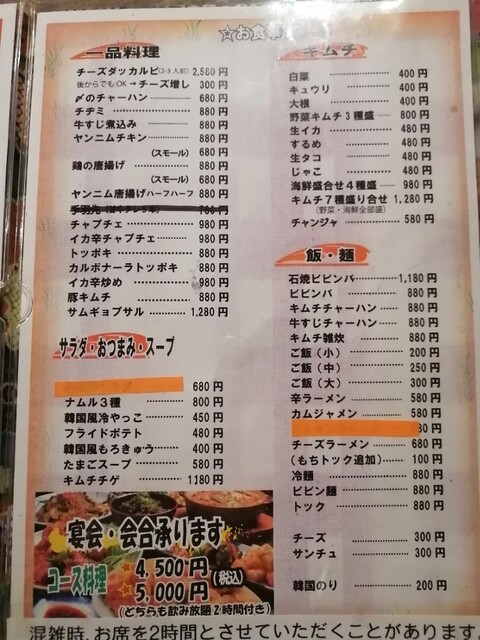 ☆お食事
一品料理
チーズダッカルビ(2-3人前) 2,580円
後からでもOK→チーズ増し 300円
〆のチャーハン 680円
チヂミ 880円
牛すじ煮込み 880円
ヤンニムチキン 880円
(スモール) 680円
鶏の唐揚げ 880円
(スモール) 680円
ヤンニム唐揚げハーフハーフ 880円
チャプチェ 980円
イカ辛チャプチェ 980円
トッポキ 880円
カルボナーラトッポキ 880円
イカ辛炒め 980円
豚キムチ 880円
サムギョプサル 1,280円
サラダ・おつまみ・スープ
680円
ナムル3種 800円
韓国風冷やっこ 450円
フライドポテト 480円
韓国風もろきゅう 400円
たまごスープ 580円
キムチチゲ 1180円
宴会・会合承ります
コース料理
☆4,500円
☆5,000円(税込)
(どちらも飲み放題2時間付き)
キムチ
白菜 400円
キュウリ 400円
大根 400円
野菜キムチ3種盛 800円
生イカ 480円
するめ 480円
生タコ 480円
じゃこ 480円
海鮮盛合せ4種盛 980円
キムチ7種盛り合せ 1,280円
(野菜・海鮮全部盛)
チャンジャ 580円
飯・麺
石焼ビビンバ 1,180円
ビビンバ 880円
キムチチャーハン 880円
牛すじチャーハン 880円
キムチ雑炊 880円
ご飯(小) 200円
ご飯(中) 250円
ご飯(大) 300円
辛ラーメン 580円
カムジャメン 580円
80円
チーズラーメン 680円
(もちトック追加) 100円
冷麺 880円
ビビン麺 880円
トック 880円
チーズ 300円
サンチュ 300円
韓国のり 200円
混雑時、お席を2時間とさせていただくことがあります